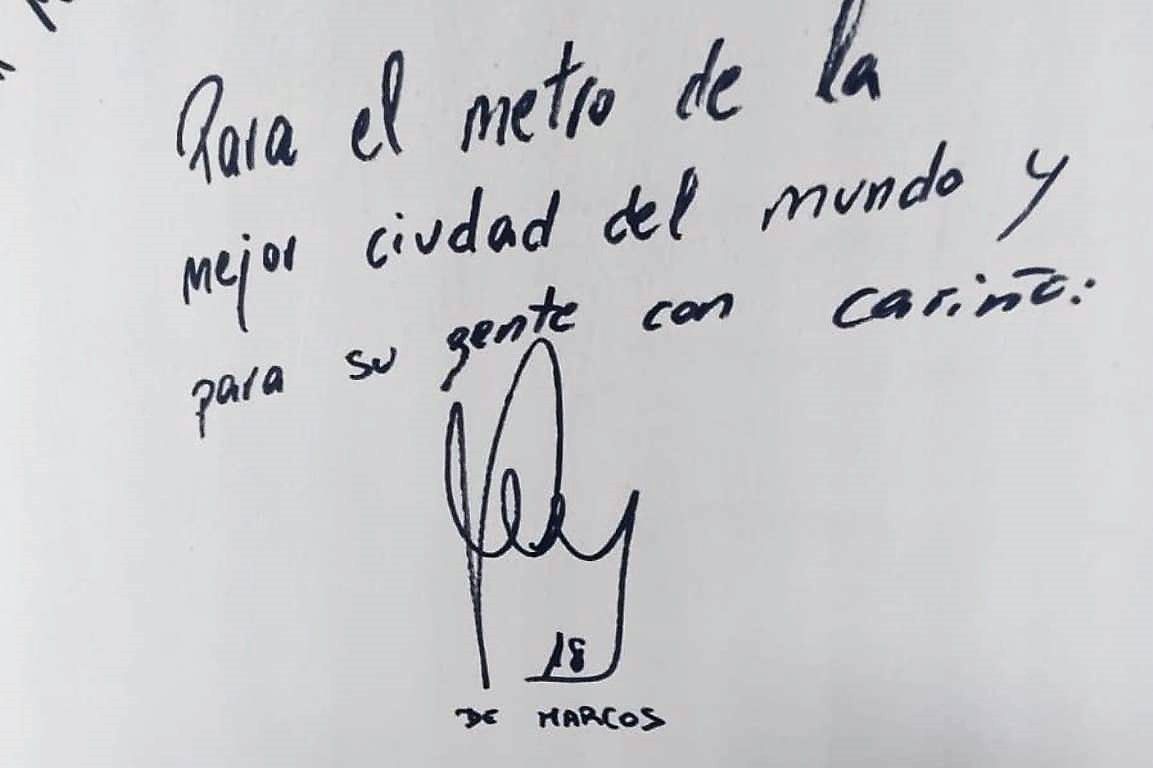 Para el metro de la
mejor ciudad del mundo y
para su gente con cariño:
18
DE MARCOS